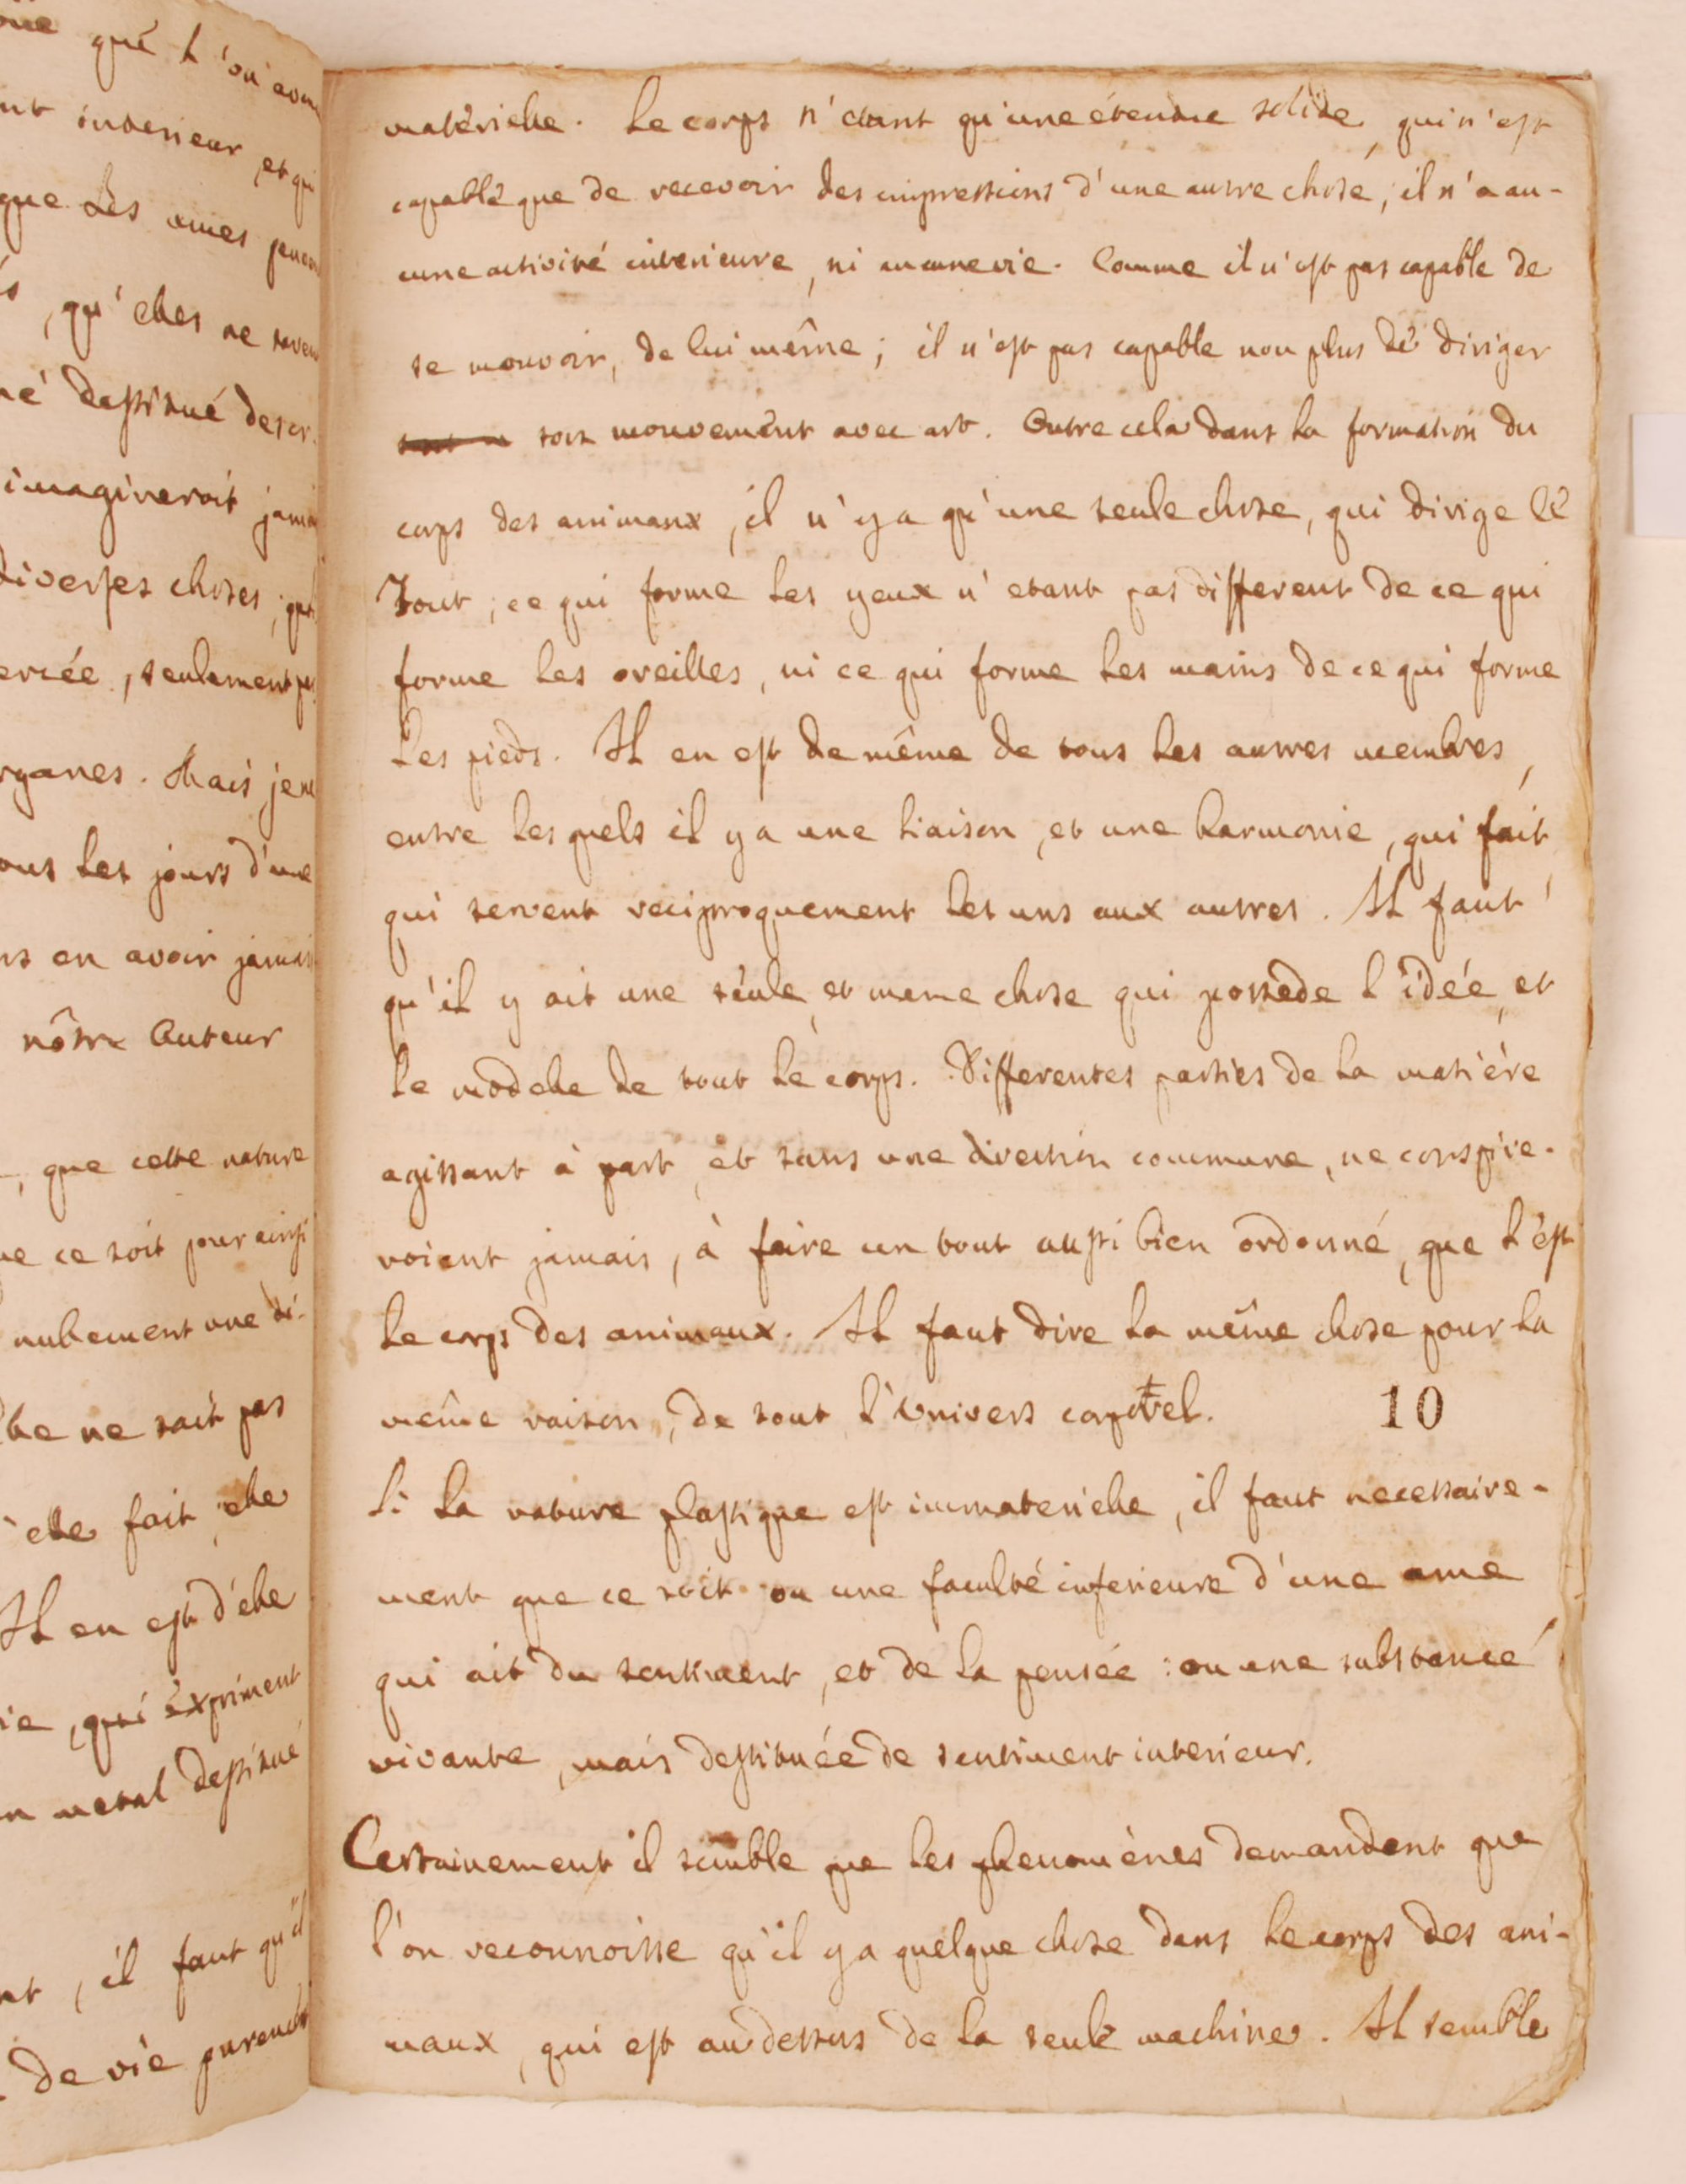 que l'on
interieur, et qui
que Les ames
, qu'elles ne
destitué de
imagineroit
diverses choses,
, seulement
. Mais je
Les jours d'une
en avoir jamais
nôtre Auteur
, que cette nature
ce soit pour ainsi
une
ne sait pas
elle fait, elle
Il en est d'elle
, qui expriment
metal destitué
, il faut qu'il
De vie purement
materielle. Le corps n'etant qu'une étendue solide, qui n'est
capable que de recevoir des impressions d'une autre chose, il n'a au-
cune activité interieure, ni aucune vie. Comme il n'est pas capable de
se mouvoir, de lui même; il n'est pas capable non plus de diriger
son mouvement avec art. Outre cela dans la formation du
corps des animaux, il n'y a qu'une seule chose, qui dirige le
Tout; ce qui forme Les yeux n'etant pas different de ce qui
forme Les oreilles, ni ce qui forme Les mains de ce qui forme
Les pieds. Il en est de même de tous Les autres membres,
entre Lesquels il y a une Liaison, et une harmonie, qui fait
qui servent reciproquement Les uns aux autres. Il faut
qu'il y ait une seule, et meme chose qui possede L'idée, et
Le modelle de tout Le corps. Differentes parties de La matière
agissant à part, et sans une direction commune, ne conspire-
roient jamais, à faire un tout aussi bien ordonné, que L'est
Le corps des animaux. Il faut dire La même chose pour La
même raison, de tout L'Univers corporel. 10
Si La nature plastique est immaterielle, il faut necessaire-
ment que ce soit ou une faculté inferieure d'une ame
qui ait du sentiment, et de La pensée: ou une substance
vivante, mais destituée de sentiment interieur.
Certainement il semble que Les phenomènes demandent que
L'on reconnoisse qu'il y a quelque chose dans Le corps des ani-
maux, qui est au dessus de La seule machine. Il semble